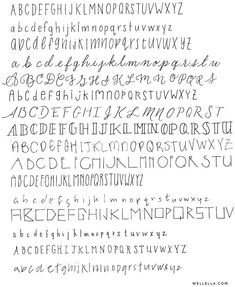 ABCDEFGHIJKLMNOPQRSTUVWXYZ
abcdefghijklmnopqrstuvwxyz
abcdefghijklmnopqrstuvwxyz
abcdefghijklmnopqrstuvwxyz
ABCDEFGHIJKLMNOPQRS
abcdefghijklmnopqrstuvwxyz
ABCDEFGHIJKLMNOPQRST
ABCDEFGHIJKLMNOPQRSTUV
ABCDEFGHIJKLMNOPQRSTUVWXYZ
ABCDEFGHIJKLMNOPQRSTUV
ABCDEFGHIJKLMNOPQRSTUVWXYZ
abcdefghijklmnopqrstuvwxyz
ABCDEFGHIJKLMNOPQRSTUV
abcdefghijklmnopqrstuvwxyz
ABCDEFGHIJKLMNOPQRSTUVWXYZ
abcdefghijklmnopqrstuvwxyz
WELLELLA.COM